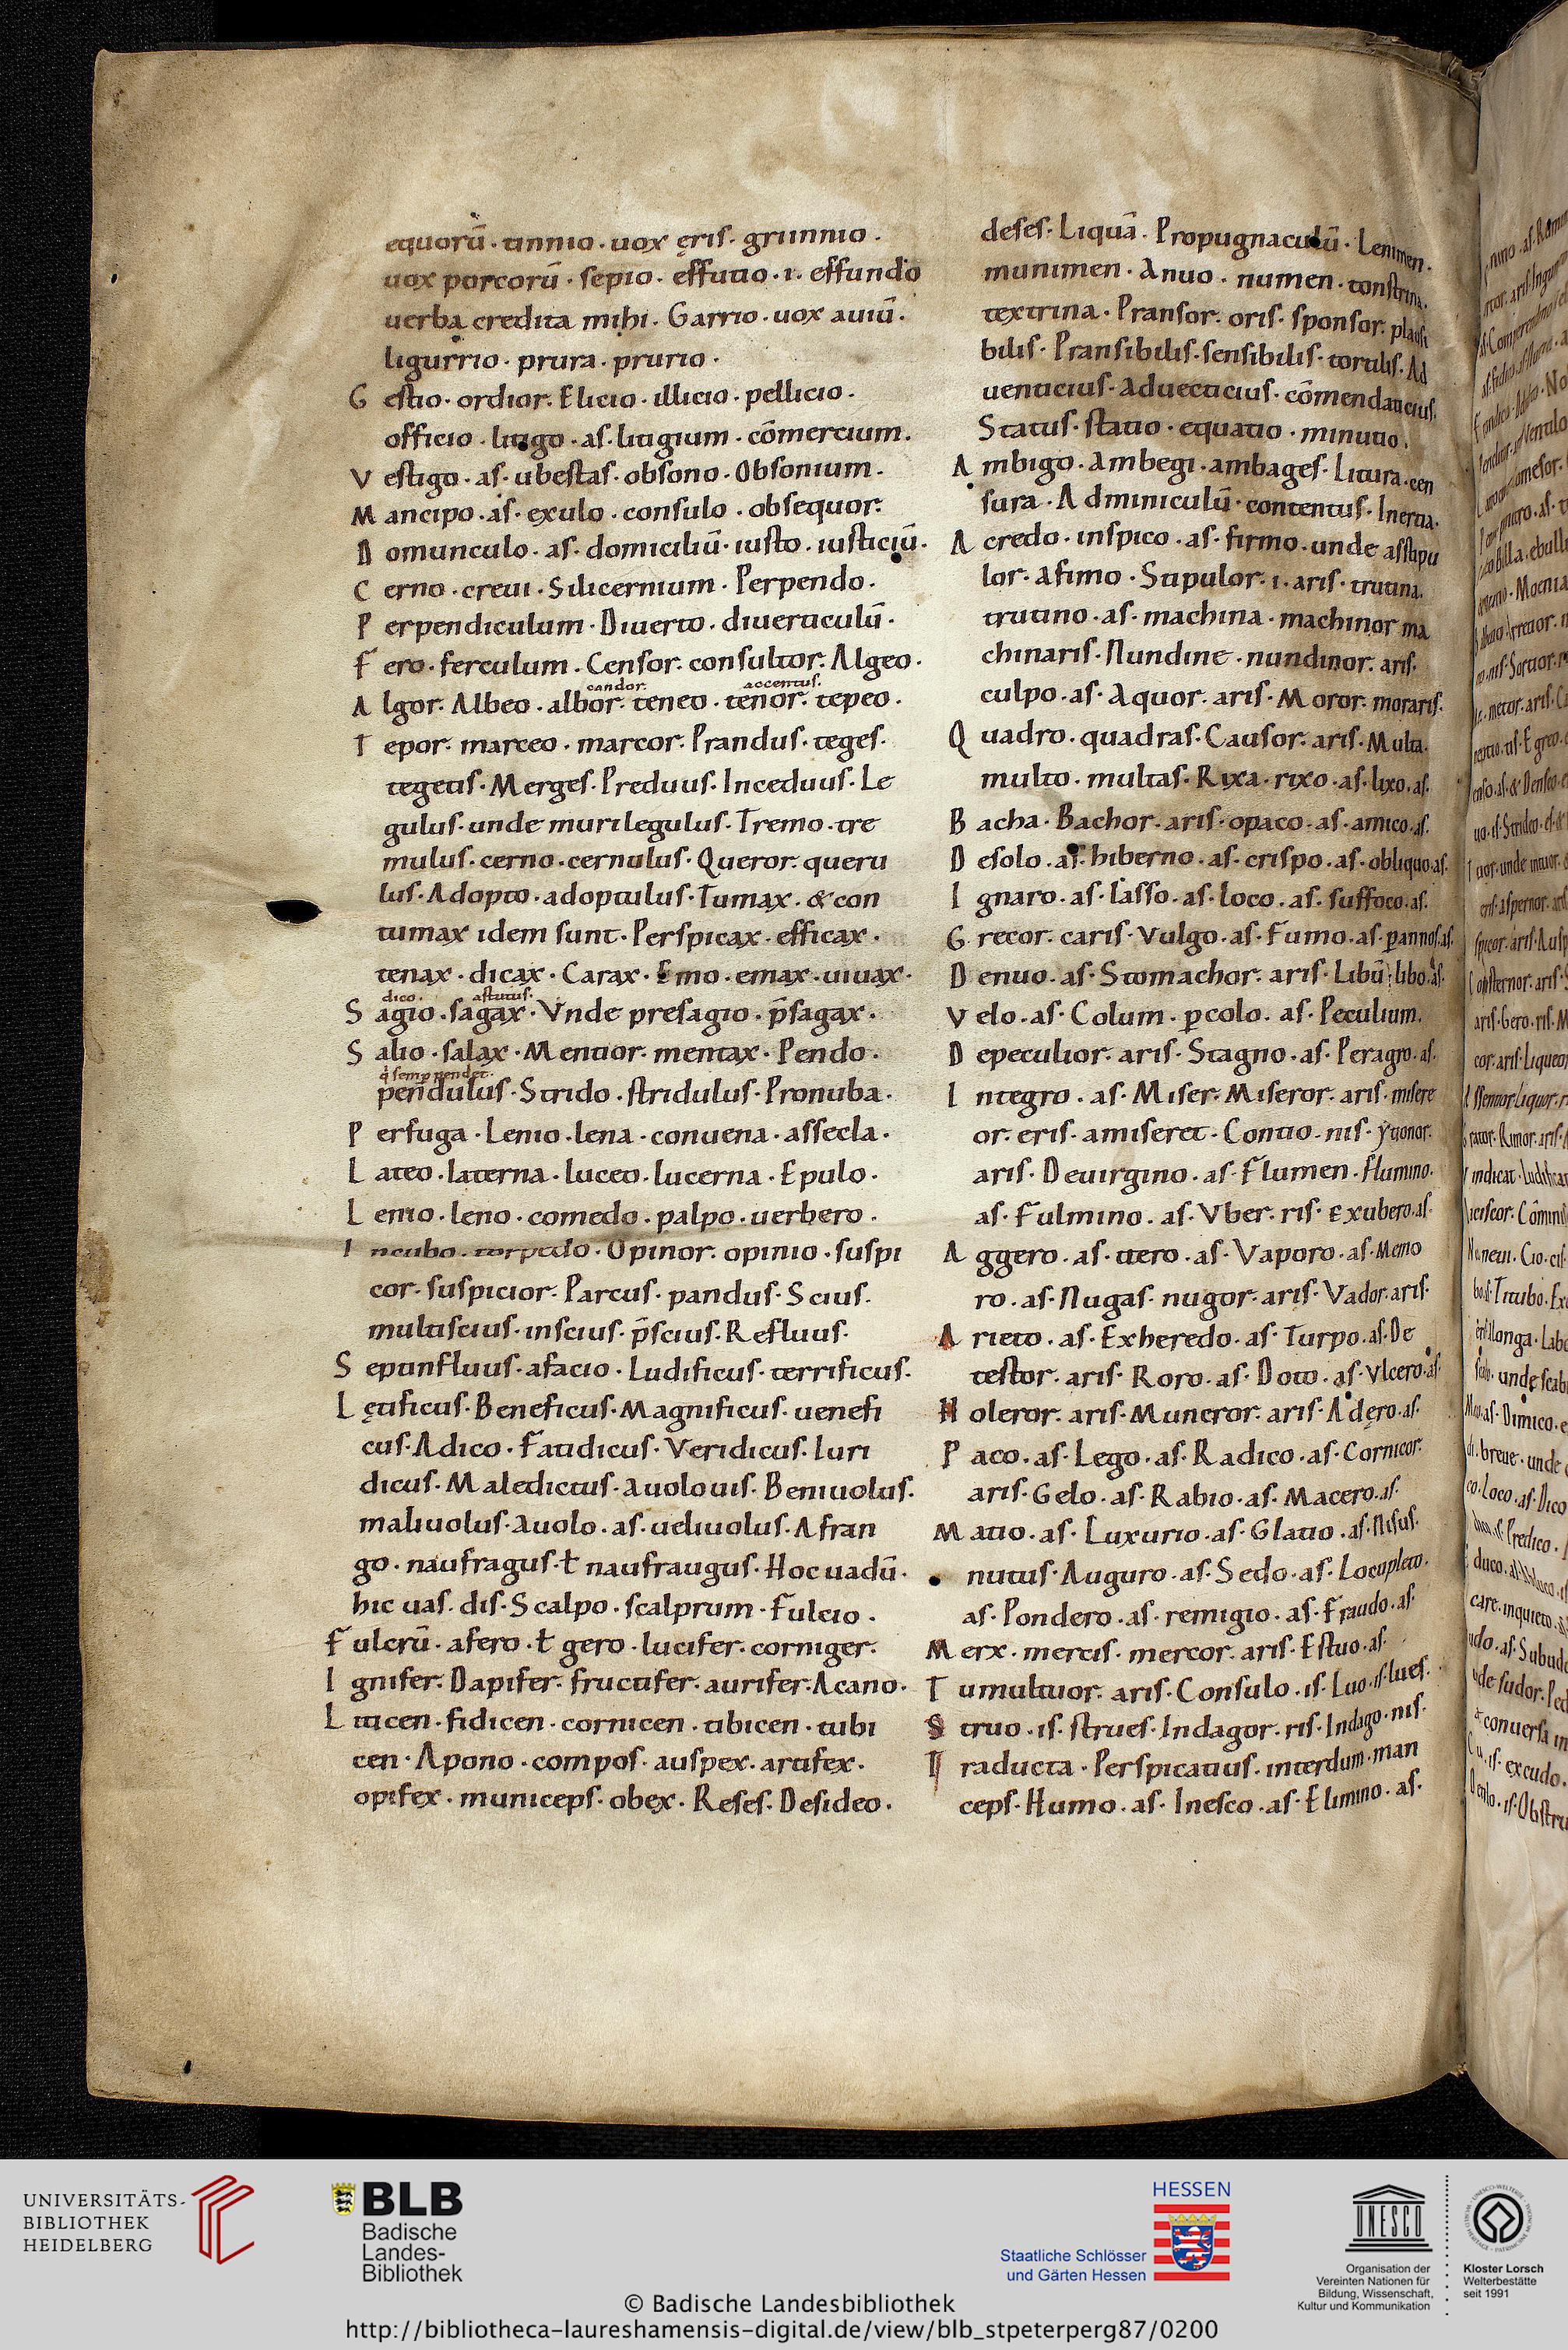 equorū · tinnio · uox ęris · griinnio ·
uox porcorū · sepio · effutio · i · effundo
uerba credita mihi · Garrio · uox auiū ·
ligurrio · prura · prurio ·
G estio · ordior · Elicio · illicio · pellicio ·
officio · litigo · as · litigium · cōmercium ·
V estigo · as · ubestas · obsono · Obsonium ·
M ancipo · as · exulo · consulo · obsequor ·
D omunculo · as · domiciliū · iusto · iusticiū ·
C erno · creui · Silicernium · Perpendo ·
P erpendiculum · Diuerto · diuerticulū ·
F ero · ferculum · Censor · consultor · Algeo ·
candor · accentus ·
A lgor · Albeo · albor · teneo · tenor · tepeo ·
T epor · marceo · marcor · Prandus · teges ·
tegetis · Merges · Preduus · Inceduus · Le
gulus · unde murilegulus · Tremo · tre
mulus · cerno · cernulus · Queror · queru
lus · Adopto · adoptulus · Tumax · & con
tumax idem sunt · Perspicax · efficax ·
tenax · dicax · Carax · Emo · emax · uiuax ·
dico · astutus ·
S agio · sagax · Vnde presagio · p̄sagax ·
S alio · salax · Mentior · mentax · Pendo ·
q̇ semp pendet ·
pendulus · Strido · stridulus · Pronuba ·
P erfuga · Lenio · lena · conuena · assecla ·
L ateo · laterna · luceo · lucerna · Epulo ·
L enio · leno · comedo · palpo · uerbero ·
I ncubo · torpedo · Opinor · opinio · suspi
cor · suspicior · Parcus · pandus · Scius ·
multiscius · inscius · p̄scius · Refluus ·
S eptinfluus · afacio · Ludificus · terrificus ·
L ętificus · Beneficus · Magnificus · uenefi
cus · Adico · Fatidicus · Veridicus · Iuri
dicus · Maledictus · auolouis · Beniuolus ·
maliuolus · auolo · as · ueliuolus · A fran
go · naufragus · ł naufraugus · Hoc uadū ·
hic uas · dis · Scalpo · scalprum · Fulcio ·
F ulcrū · afero · ł gero · lucifer · corniger ·
I gnifer · Dapifer · fructifer · aurifer · Acano ·
L iticen · fidicen · cornicen · tibicen · tubi
cen · Apono · compos · auspex · artifex ·
opifex · municeps · obex · Reses · Desideo ·
deses · Liquā · Propugnaculū · Lenimen ·
munimen · Anuo · numen · tonstrina ·
textrina · Pransor · oris · sponsor · plausi
bilis · Pransibilis · sensibilis · tortilis · Ad
uenticius · aduecticius · cōmendaticius ·
Status · statio · equatio · minutio ·
A mbigo · Ambegi · ambages · Litura · cen
sura · Adminiculū · contentus · Inertia ·
A credo · inspico · as · firmo · unde asstipu
lor · afimo · Stipulor · i · aris · trutina ·
trutino · as · machina · machinor ma
chinaris · Nundine · nundinor · aris ·
culpo · as · aquor · aris · Moror · moraris ·
Q uadro · quadras · Causor · aris · Multa ·
multo · multas · Rixa · rixo · as · lixo · as ·
B acha · Bachor · aris · opaco · as · amico · as ·
D esolo · as · hiberno · as · crispo · as · obliquo · as ·
I gnaro · as · lasso · as · loco · as · suffoco · as ·
G recor · caris · Vulgo · as · Fumo · as · pannos · as ·
D enuo · as · Stomachor · aris · Libū · libo · as ·
V elo · as · Colum · pcolo · as · Peculium ·
D epeculior · aris · Stagno · as · Peragro · as ·
I ntegro · as · Miser · Miseror · aris · misere
or · eris · amiseret · Contio · nis · ytionor ·
aris · Deuirgino · as · Flumen · flumino ·
as · Fulmino · as · Vber · ris · Exubero · as ·
A ggero · as · itero · as · Vaporo · as · Memo
ro · as · Nugas · nugor · aris · Vador · aris ·
A rieto · as · Exheredo · as · Turpo · as · De
testor · aris · Roro · as · Doto · as · Vlcero · as ·
H oleror · aris · Muneror · aris · Adęro · as ·
P aco · as · Lego · as · Radico · as · Cornicor ·
aris · Gelo · as · Rabio · as · Macero · as ·
M atio · as · Luxurio · as · Glatio · as · Nisus ·
nutus · Auguro · as · Sedo · as · Locupleto ·
as · Pondero · as · remigio · as · Fraudo · as ·
M erx · mercis · mercor · aris · Estuo · as ·
T umultuor · aris · Consulo · is · Luo · is · lues ·
S truo · is · strues · Indagor · ris · Indago · nis ·
T raducta · Perspicatius · interdum · man
ceps · Humo · as · Inesco · as · Elimino · as ·
UNIVERSITÄTS-
BIBLIOTHEK
HEIDELBERG
BLB
Badische
Landes-
Bibliothek
HESSEN
Staatliche Schlösser
und Gärten Hessen
UNESCO
Organisation der
Vereinten Nationen für
Bildung, Wissenschaft,
Kultur und Kommunikation
Kloster Lorsch
Welterbestätte
seit 1991
© Badische Landesbibliothek
http://bibliotheca-laureshamensis-digital.de/view/blb_stpeterperg87/0200